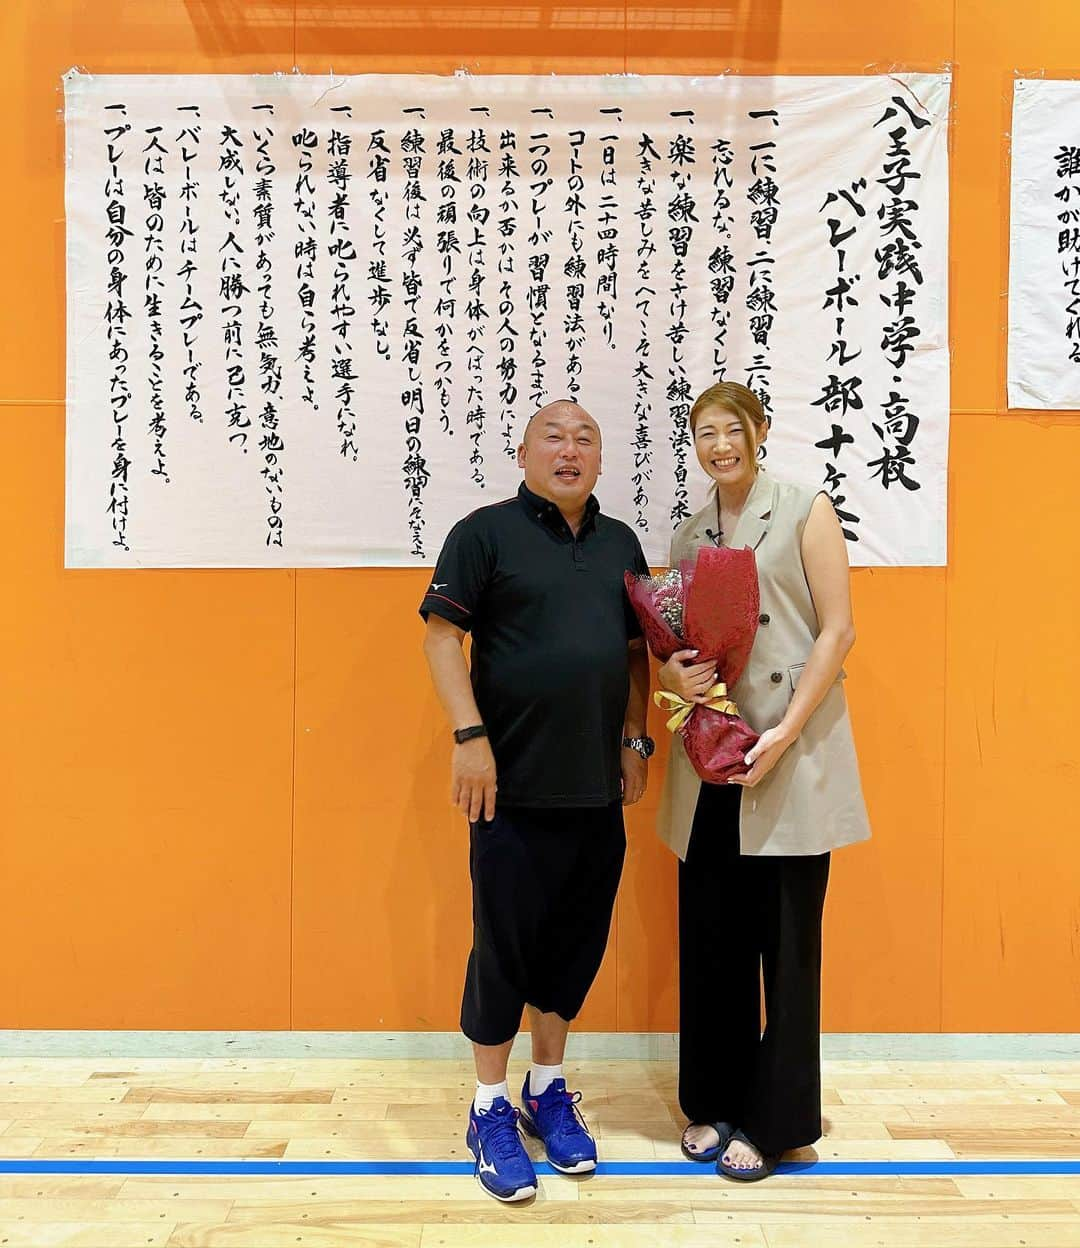 八王子実践中学・高校
バレーボール部十ケ条
一、一に練習、二に練習、三に練
忘れるな。練習なくして
一、楽な練習をさけ苦しい練習法を自ら求
大きな苦しみをへてこそ大きな喜びがある。
一、一日は二十四時間なり。
コートの外にも練習法がある
一、一つのプレーが習慣となるまで
出来るか否かはその人の努力による。
一、技術の向上は身体がへばった時である。
最後の頑張りで何かをつかもう。
一、練習後は必ず皆で反省し明日の練習にそなえよ。
反省なくして進歩なし。
一、指導者に叱られやすい選手になれ。
叱られない時は自ら考えよ。
一、いくら素質があっても無気力、意地のないものは
大成しない。人に勝つ前に己に克つ。
一、バレーボールはチームプレーである。
一人は皆のために生きることを考えよ。
一、プレーは自分の身体にあったプレーを身に付けよ。
誰かが助けてくれる